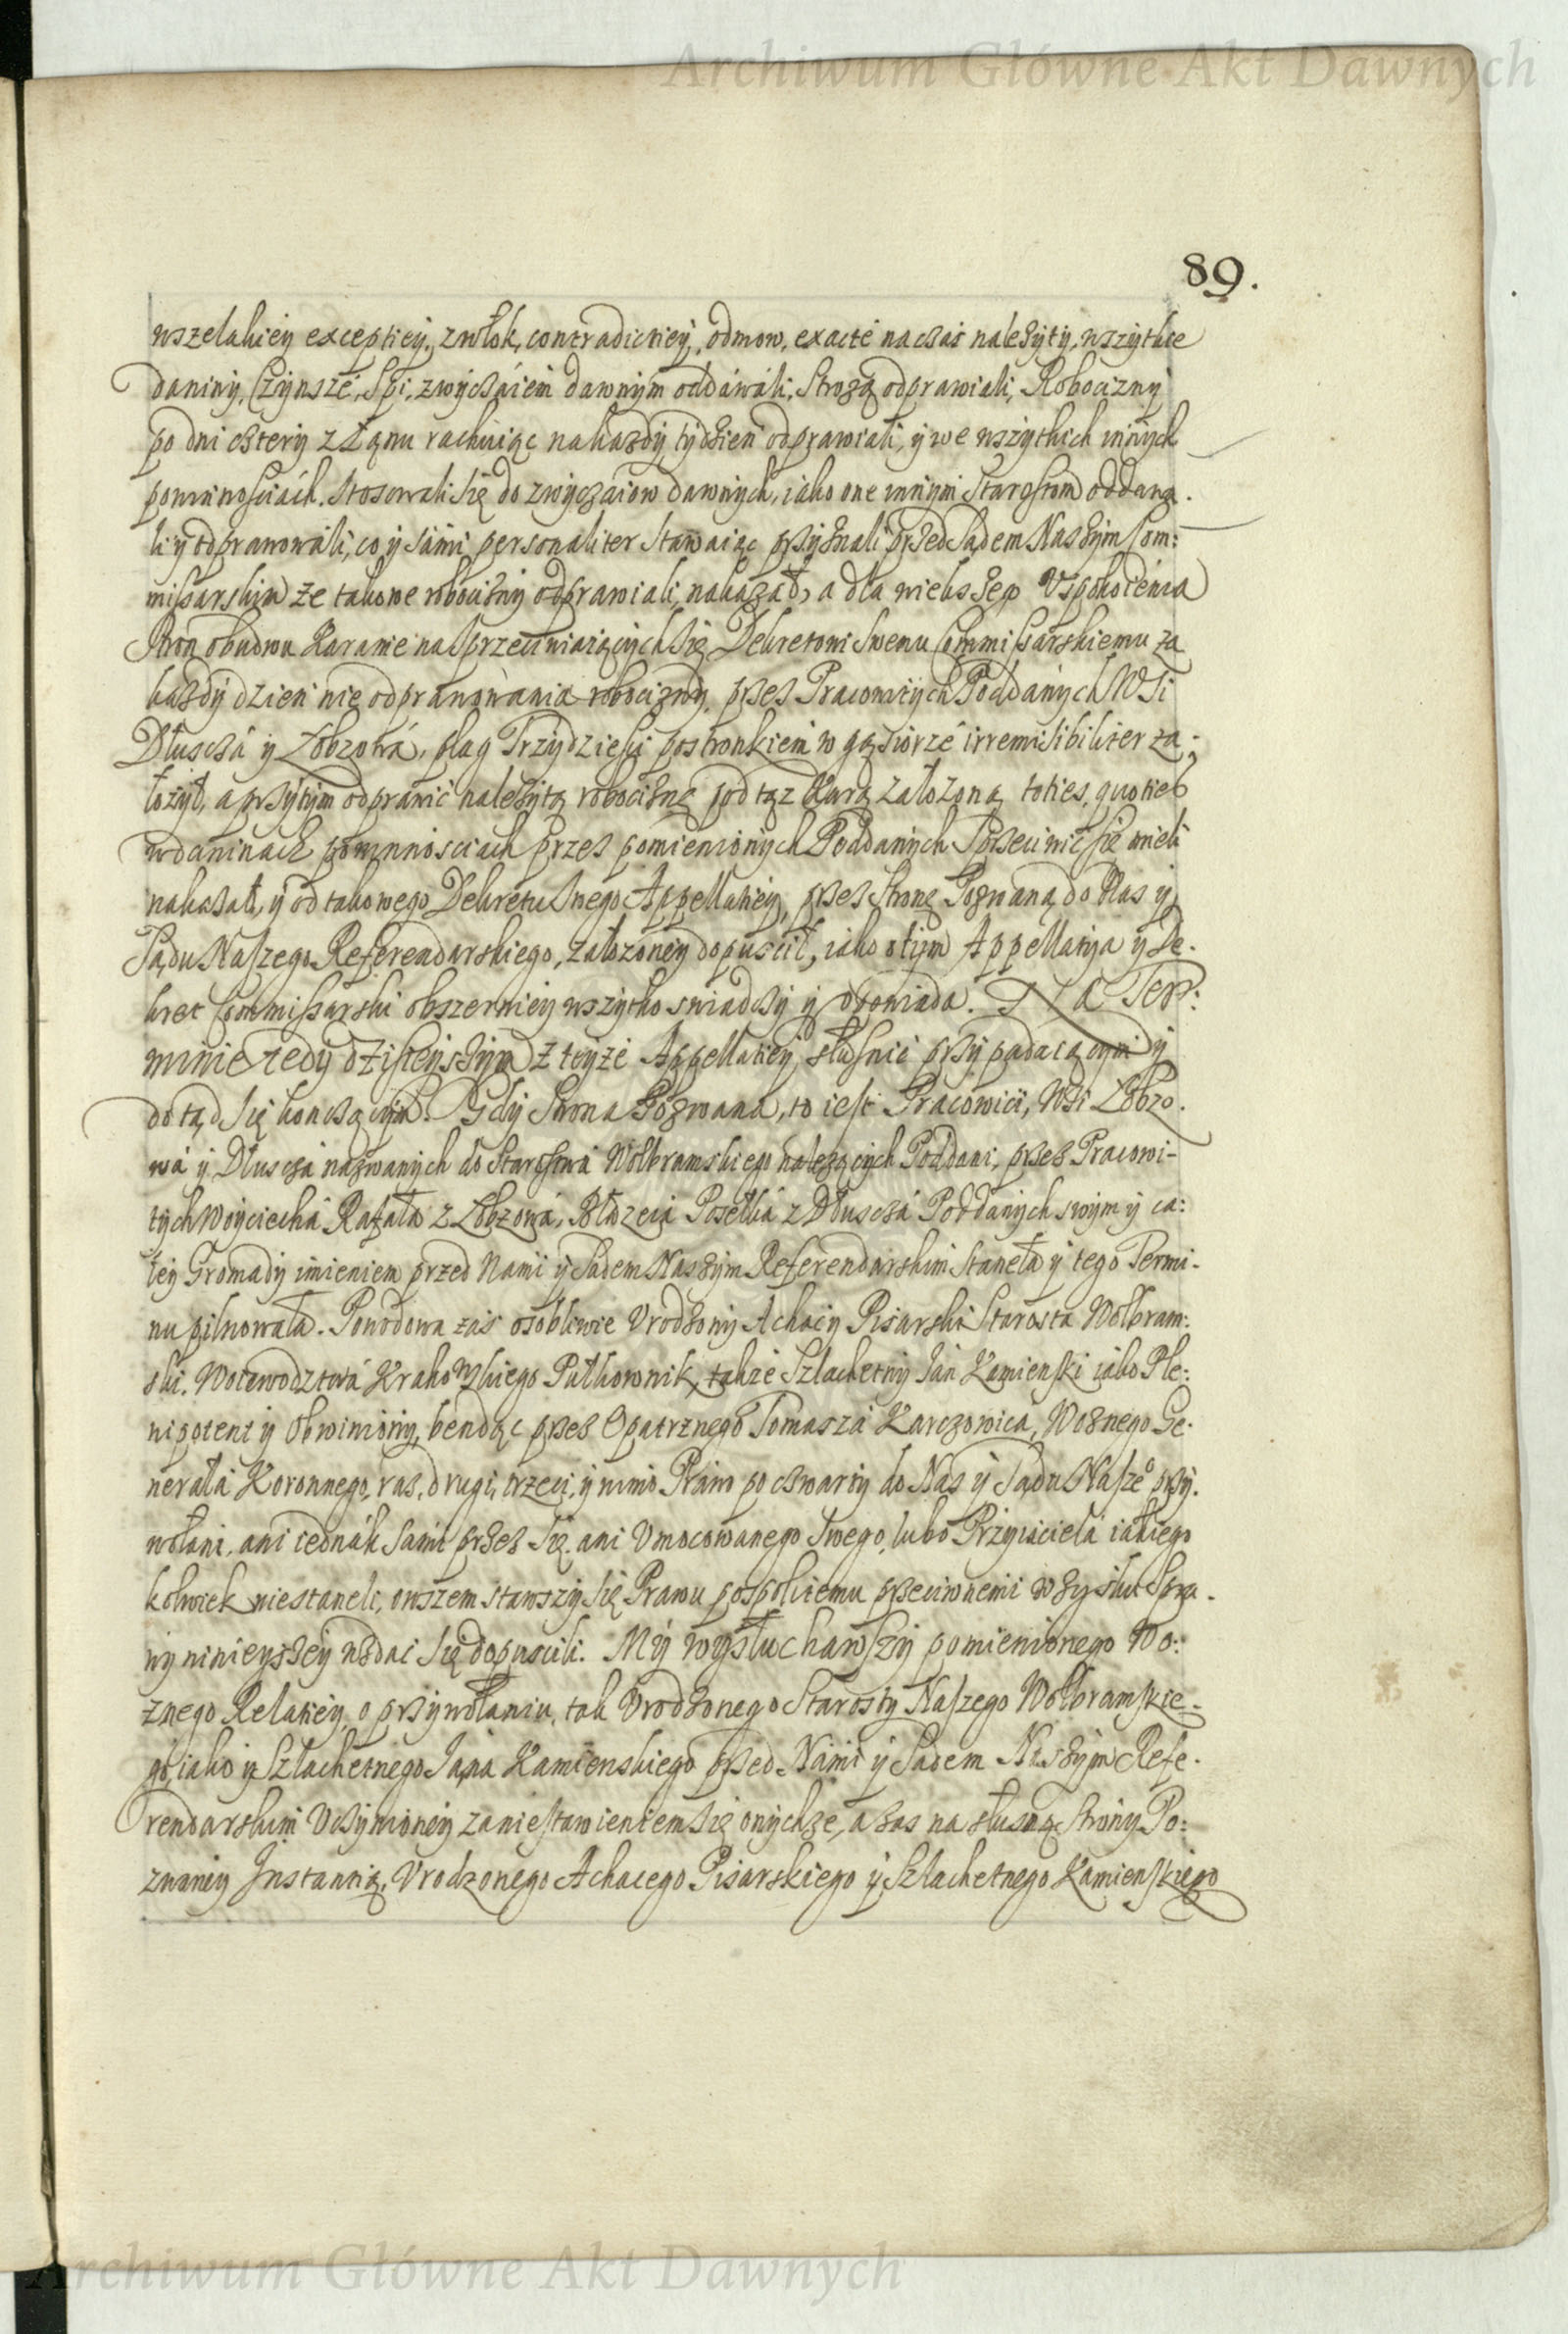 Archiwum Główne Akt Dawnych
89.
wszelakiey exceptiey, zwłok, contradictiey, odmow, exacte na czas należyty, wszytkie
daniny, Czynsze, Spi, zwyczaiem dawnym oddawali, Strożą odprawiali, Robocizny
po dni cztery z Łanu rachuiąc na każdy tydzień odprawiali, y we wszytkich innych
powinnościach. stosowali się do zwyczaiow dawnych, iako one innym Starostom oddawa-
li y odprawowali, co y sami personaliter stawaiąc przyznali przed Sądem Naszym Com:
missarskim że takowe robocizny odprawiali, nakazał, a dla większego Uspokoienia
Stron obudwu Karanie na Sprzeciwiaiących się Dekretowi Swemu Commissarskiemu za
każdy dzień nie odprawowania robocizny, przez Pracowitych Poddanych WSi
Dłuscza y Łobzowa, plag Trzydzieści postronkiem w gąsiorze irremisibiliter za-
łożył, a przytym odprawić należytą robociznę pod tąż Karą założoną toties, quoties
w daninach powinnosciach przez pomienionych Poddanych Sprzeciwić się mieli
nakazał, y od takowego Dekretu Swego Appellatiey, przez Stronę Pozwaną do Nas y
Sądu Naszego Referendarskiego, założoney dopuścił, iako o tym Appellatia y De-
kret Commissarski obszerniey wszytko swiadczy y opowiada. Na Ter:
minie tedy dzisieyszym z teyże Appellatiey słusnie przypadaiącym y
do tąd się kończącym. Gdy Strona Pozwana, to iest Pracowici, WSi Łobzo-
wa y Dłuscza nazwanych do Starostwa Wolbramskiego należących Poddani, przez Pracowi-
tych Woyciecha Rafała z Łobzowa, Błazeia Posełka z Dłuscza Poddanych swym y ca:
łey Gromady imieniem przed Nami y Sądem Naszym Referendarskim Staneła y tego Termi-
nu pilnowała. Powodowa zaś osobliwie Urodzony Achacy Pisarski Starosta Wolbram:
ski, Woiewodztwa Krakowskiego Pułkownik, także Szlachetny Jan Kamienski iako Ple:
nipotent y Obwiniony, bendąc przez Opatrznego Tomasza Karczowica, Woznego Ge-
nerała Koronnego, raz, drugi, trzeci, y mimo Prawo po czwarty do Nas y Sądu Nasze° przy-
wołani, ani iednak sami przez się, ani Umocowanego Swego, lubo Przyiaciela iakiego
kolwiek niestaneli, owszem stawszy się Prawu pospolitemu przeciwnemi w zysku Spra-
wy ninieyszey wzdać się dopuscili. My wysłuchawszy pomienionego Wo:
znego Relatiey, o przywołaniu, tak Urodzonego Starosty Naszego Wolbramskie-
go, iako y Szlachetnego Jana Kamienskiego przed Nami y Sądem Naszym Refe-
rendarskim Uczynioney za niestawieniem się onychże, a zas na słuszną Strony Po:
zwaney Jnstantią, Urodzonego Achacego Pisarskiego y Szlachetnego Kamienskiego
Archiwum Główne Akt Dawnych